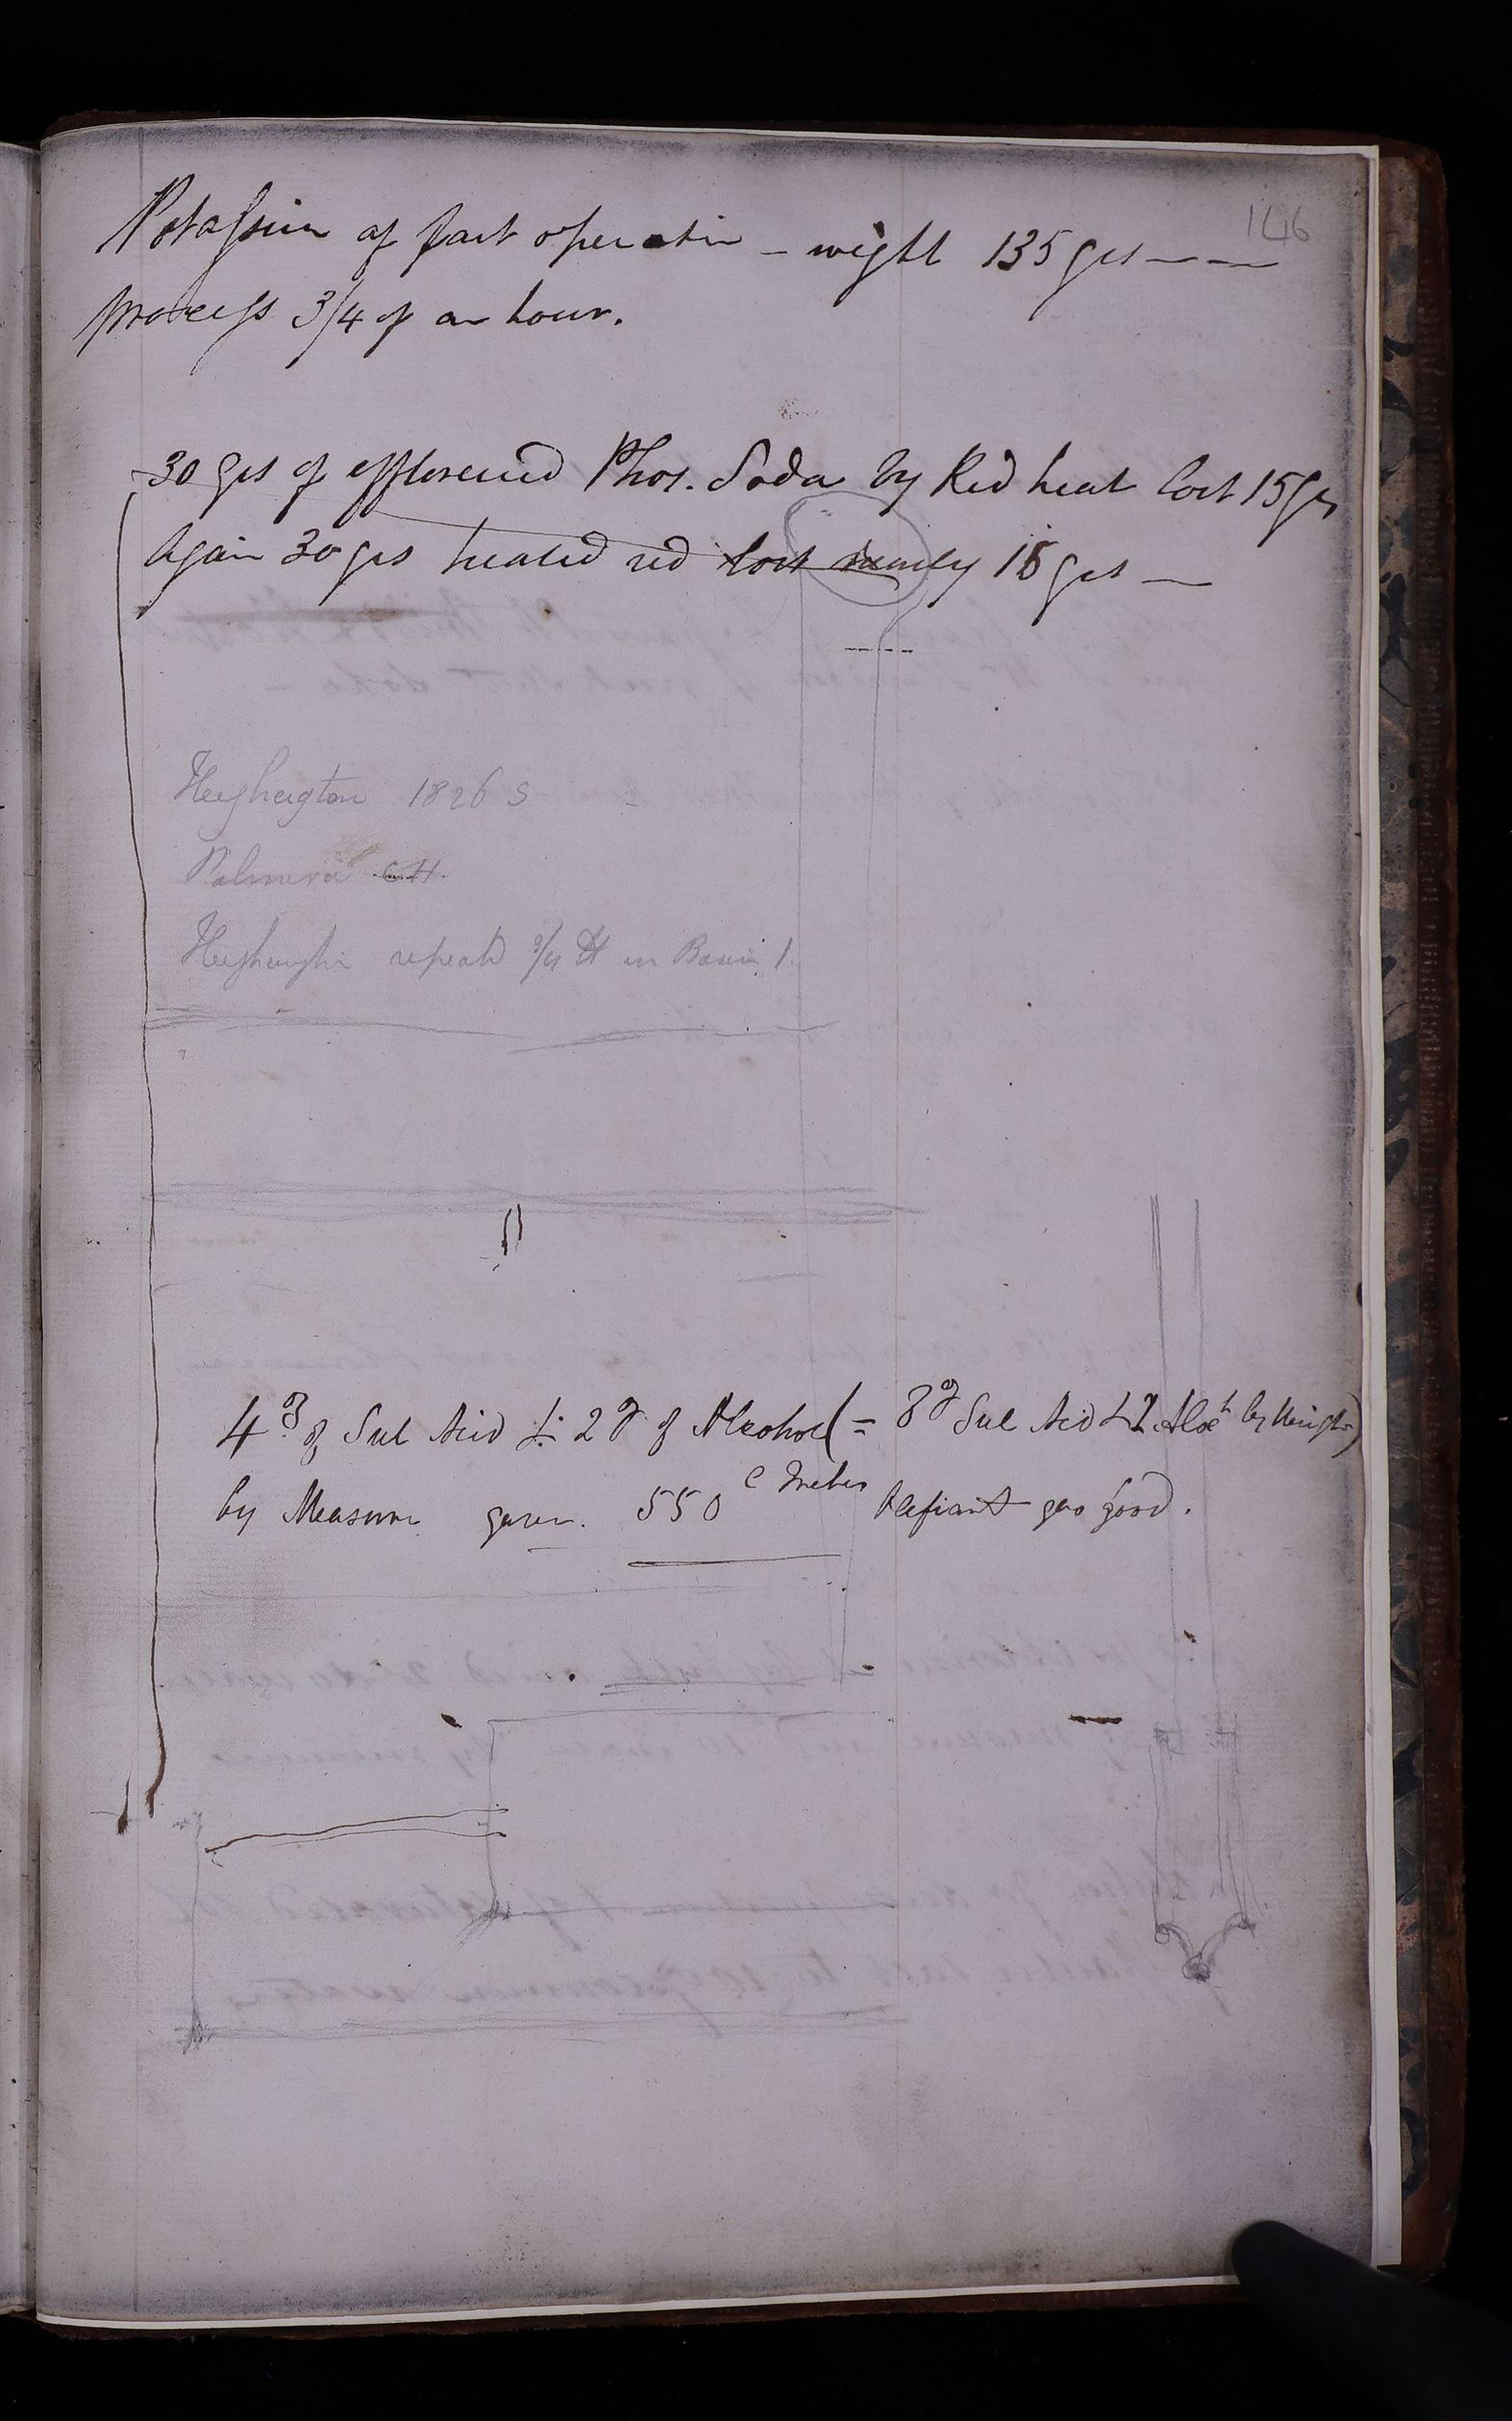 146
Potassium of part operation – weight 135 grs — —
process 3/4 of an hour.
30 grs of effloresced Phos. Soda by Red heat lost 15 grs
Again 30 grs heated red lost nearly 15 grs —
1826 S
repeated in Basin 1.
4 ℥ of Sul Acid & 2 ℥ of Alcohol (= 8 ℥ Sul Acid & 2 Alco^h by Weight)
by Measure gave. 550 C Inches Olefiant gas good.